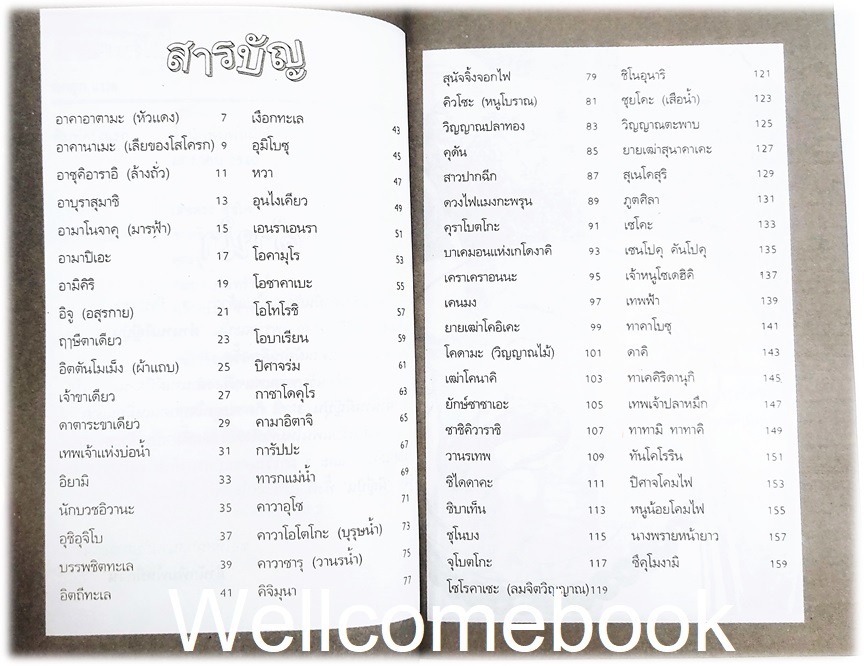 สารบัญ
อาคาอาตามะ (หัวแดง) 7
อาคานาเมะ (เลียของโสโครก) 9
อาซุคิอาราอิ (ล้างถั่ว) 11
อาบุราสุมาชิ 13
อามาโนจาคุ (มารฟ้า) 15
อามาบิเอะ 17
อามิคิริ 19
อิจู (อสุรกาย) 21
ฤาษีตาเดียว 23
อิตตันโมเม็ง (ผ้าแถบ) 25
เจ้าขาเดียว 27
ดาตาระขาเดียว 29
เทพเจ้าแห่งบ่อน้ำ 31
อิยามิ 33
นักบวชอิวานะ 35
อุชิอุจิโบ 37
บรรพชิตทะเล 39
อิตถีทะเล 41
เงือกทะเล 43
อุมิโบซุ 45
หวา 47
อุนไงเคียว 49
เอนราเอนรา 51
โอคามุโร 53
โอซาคาเบะ 55
โอโทโรชิ 57
โอบาเรียน 59
ปิศาจร่ม 61
กาชาโดคุโร 63
คามาอิตาจิ 65
การัปปะ 67
ทารกแม่น้ำ 69
คาวาอุโซ 71
คาวาโอโตโกะ (บุรุษน้ำ) 73
คาวาซารุ (วานรน้ำ) 75
คิจิมุนา 77
สุนัขจิ้งจอกไฟ 79
คิวโซะ (หนูโบราณ) 81
วิญญาณปลาทอง 83
คุตัน 85
สาวปากฉีก 87
ดวงไฟแมงกะพรุน 89
คุราโบตโกะ 91
บาเคมอนแห่งเกโดงาคิ 93
เคราเคราอนนะ 95
เคนมง 97
ยายเฒ่าโคอิเคะ 99
โคดามะ (วิญญาณไม้) 101
เฒ่าโคนาคิ 103
ยักษ์ซาซาเอะ 105
ซาชิคิวาราชิ 107
วานรเทพ 109
ชิไดดาคะ 111
ชิบาเท็น 113
ชุโนบง 115
จุโบตโกะ 117
โชโรคาเซะ (ลมจิตวิญญาณ) 119
ชิโนอุนาริ 121
ซุยโคะ (เสือน้ำ) 123
วิญญาณตะพาบ 125
ยายเฒ่าสุนาคาเคะ 127
สุเนโคสุริ 129
ภูตศิลา 131
เซโคะ 133
เซนโปคุ คันโปคุ 135
เจ้าหนูโซเดฮิคิ 137
เทพฟ้า 139
ทาคาโบซุ 141
ดาคิ 143
ทาเคคิริดานุกิ 145
เทพเจ้าปลาหมึก 147
ทาทามิ ทาทาคิ 149
ทันโคโรริน 151
ปิศาจโคมไฟ 153
หนูน้อยโคมไฟ 155
นางพรายหน้ายาว 157
ซึคุโมงามิ 159
Wellcomebook